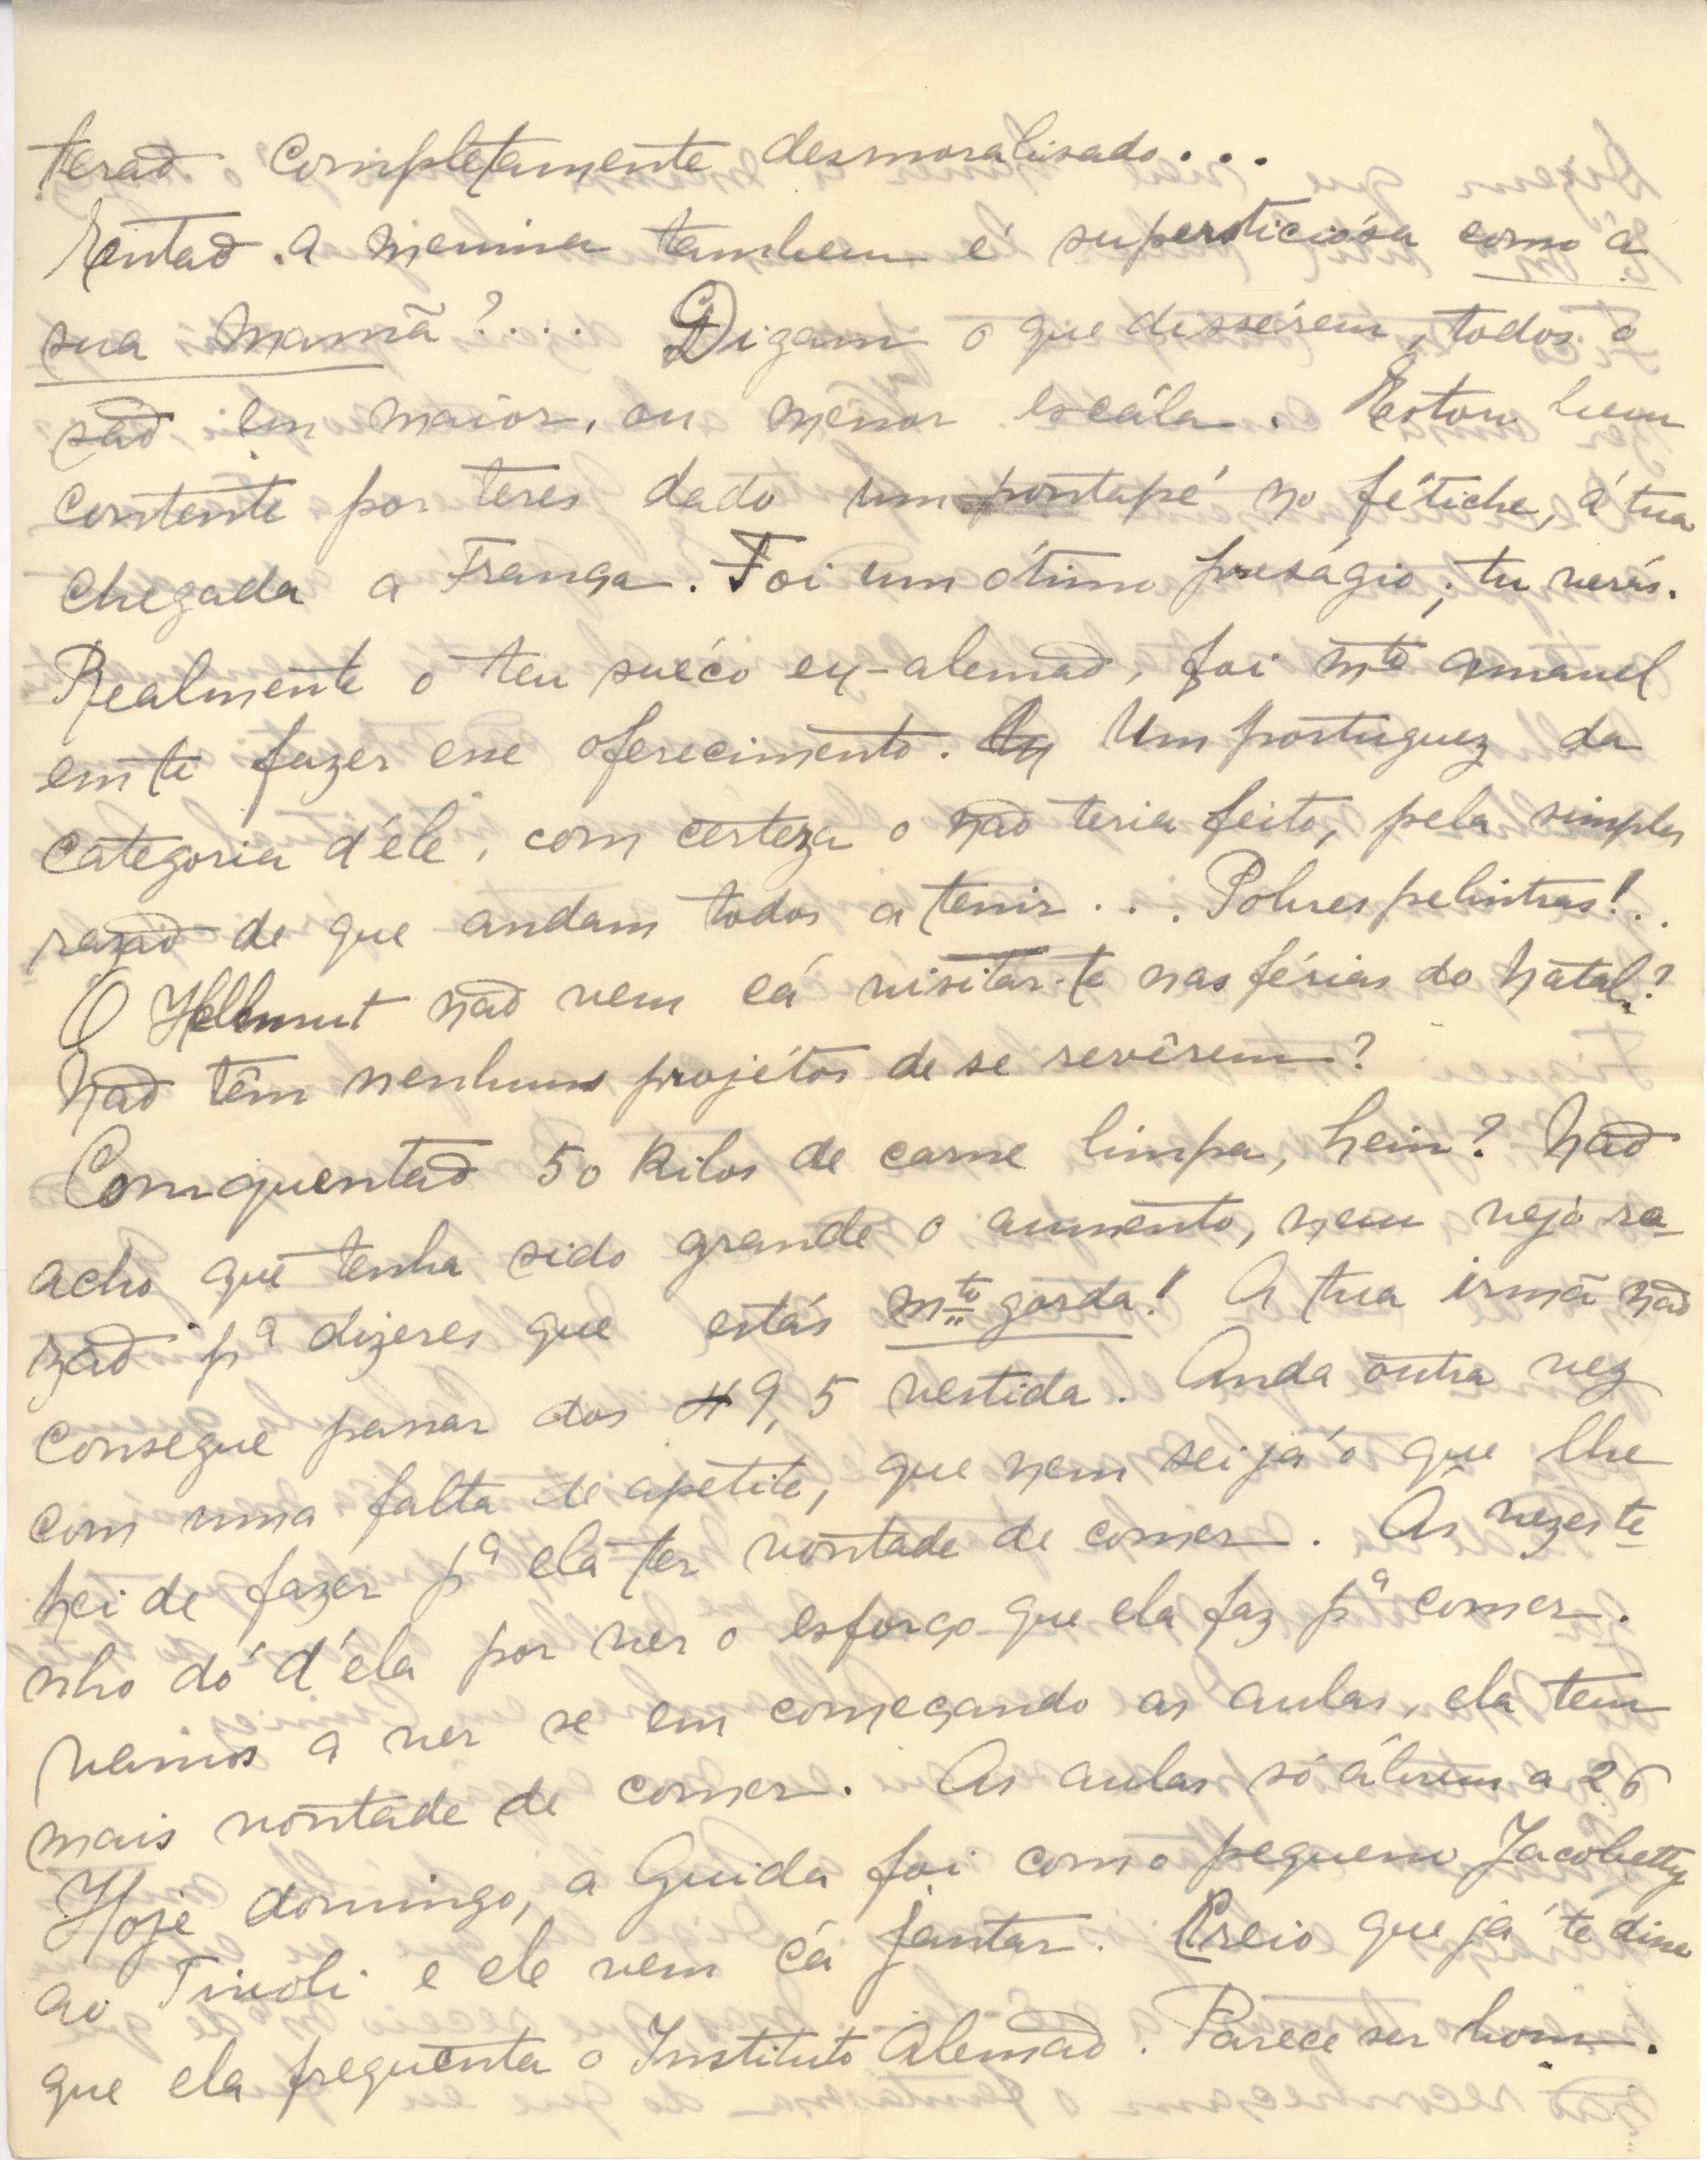 terão completamente desmoralisado...
Entao. A menina tambem é supersticiósa como a
sua Mamã?.... Digam o que dissérem, todos o
são em maior, ou menor escála. Estou bem
contente por teres dado um pontapé no fétiche, á tua
chegada a França. Foi um ótimo preságio; tu verás.
Realmente o teu suéco ex-alemão, foi mto amavel
em te fazer esse oferecimento. Um portuguez da
categoria d'éle, com certeza o não teria feito, pela simples
razão de que andam todos a tenir... Pobres pelintras!..
O Hellmut não vem cá visitar-te nas férias do Natal?
Não têm nenhuns projétos de se revêrem?
Com quentão 50 Kilos de carne limpa, hein? Não
acho que tenha sido grande o aumento, nem vejo ra-
zão pa dizeres que estás mto gorda! A tua irmã não
consegue passar dos 49,5 vestida. Anda outra vez
com uma falta de apetite, que nem sei já o que lhe
hei de fazer pa ela ter vontade de comer. As vezes te-
nho dó d'éla por ver o esforço que ela faz pa comer.
Vamos a ver se em começando as aulas, ela tem
mais vontade de comer. As aulas só ábrem a 26
Hoje domingo, a Guida foi com o pequeno Jacobetty
ao Tivoli e ele vem cá jantar. Creio que já te disse
que ela frequenta o Instituto Alemão. Parece ser bom.